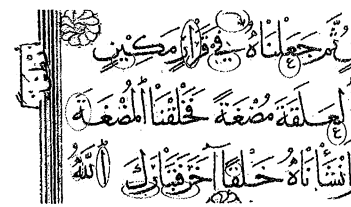 ثُمَّ جَعَلْنَاهُ فِي قَرَارٍ مَكِينٍ
لْعَلَقَةَ مُضْغَةً فَخَلَقْنَا الْمُضْغَةَ
أَنْشَأْنَاهُ خَلْقًا آخَرَ فَتَبَارَكَ اللَّهُ